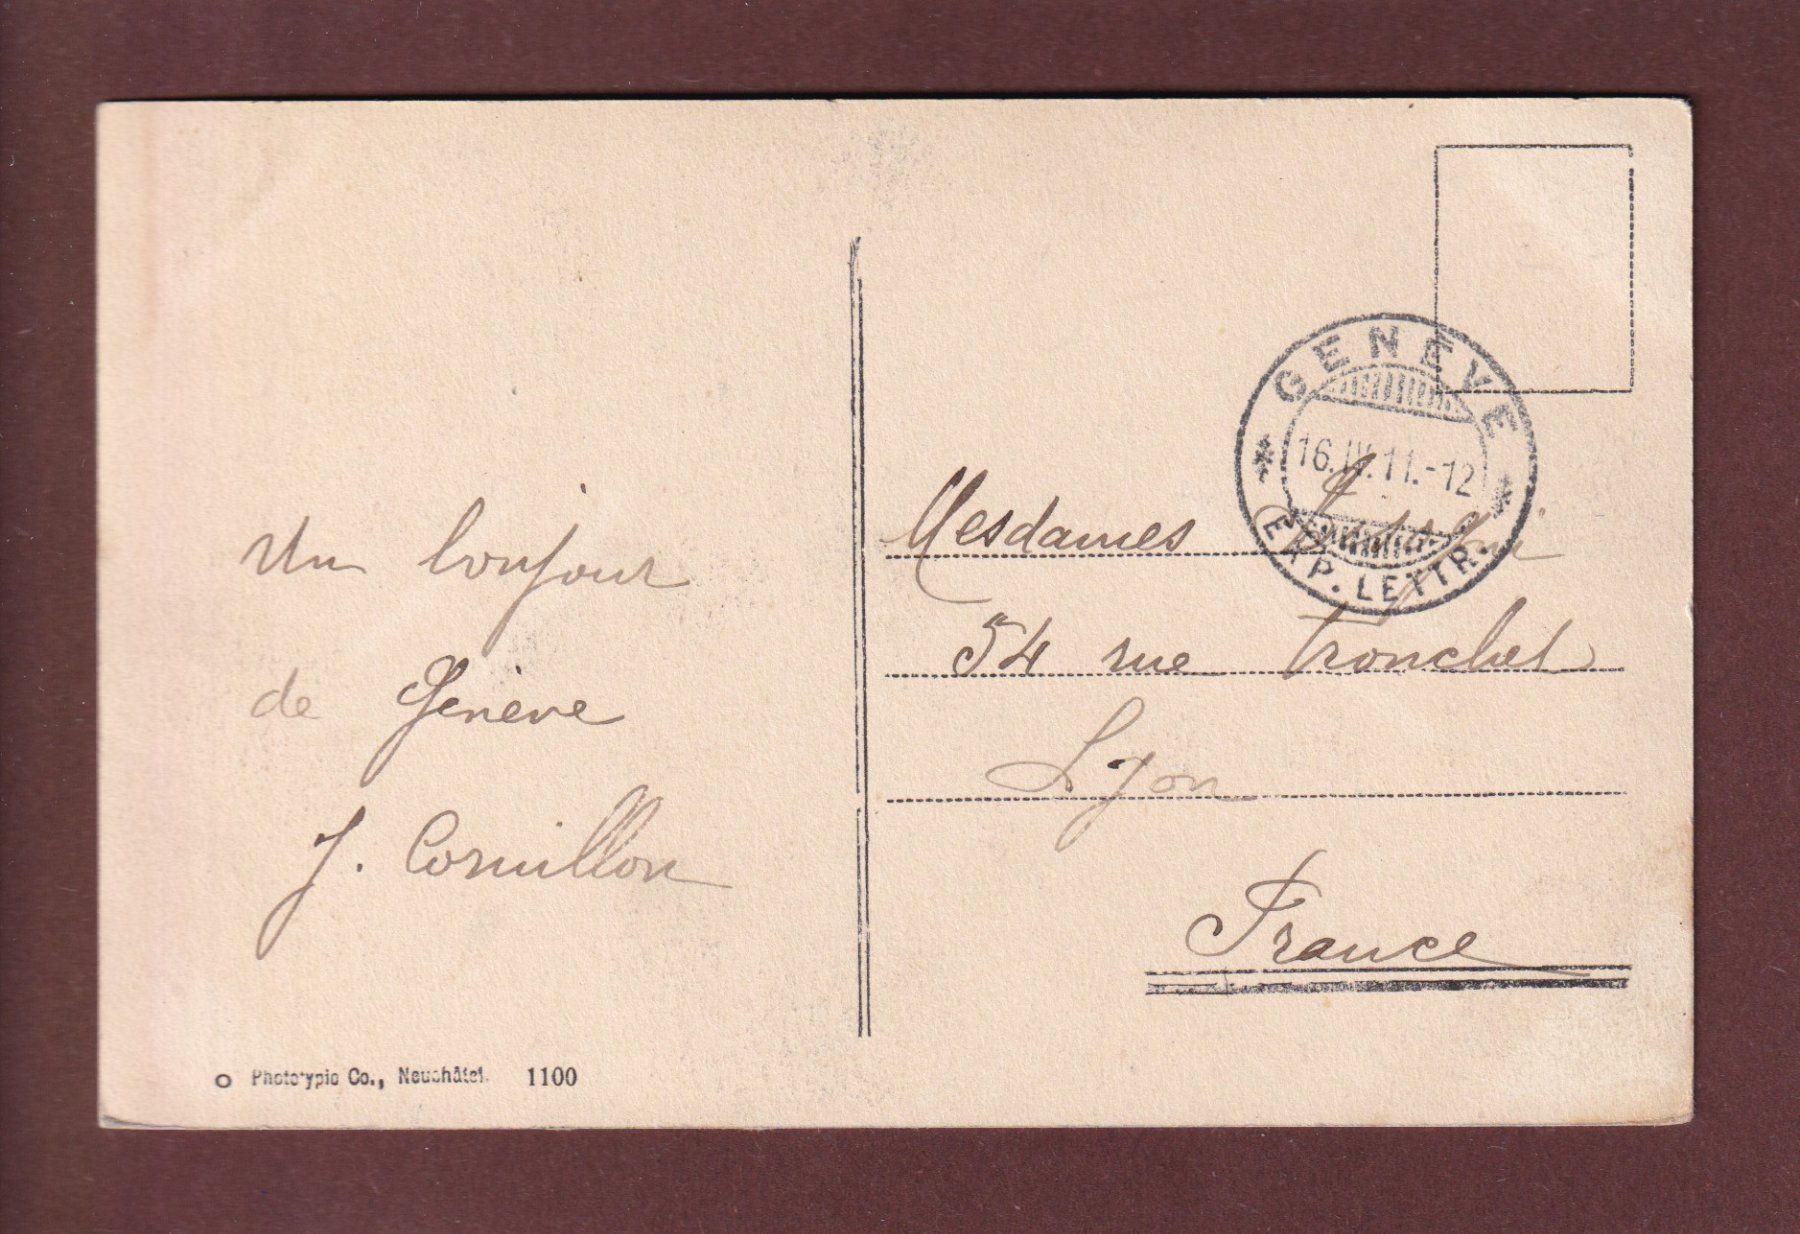 Un bonjour
de Genève
J. Cornillon
Phototypie Co., Neuchâtel. 1100
GENÈVE
16.IV.11.-12
EXP. LETTR.
Mesdames
54 rue Tronchet
Lyon
France